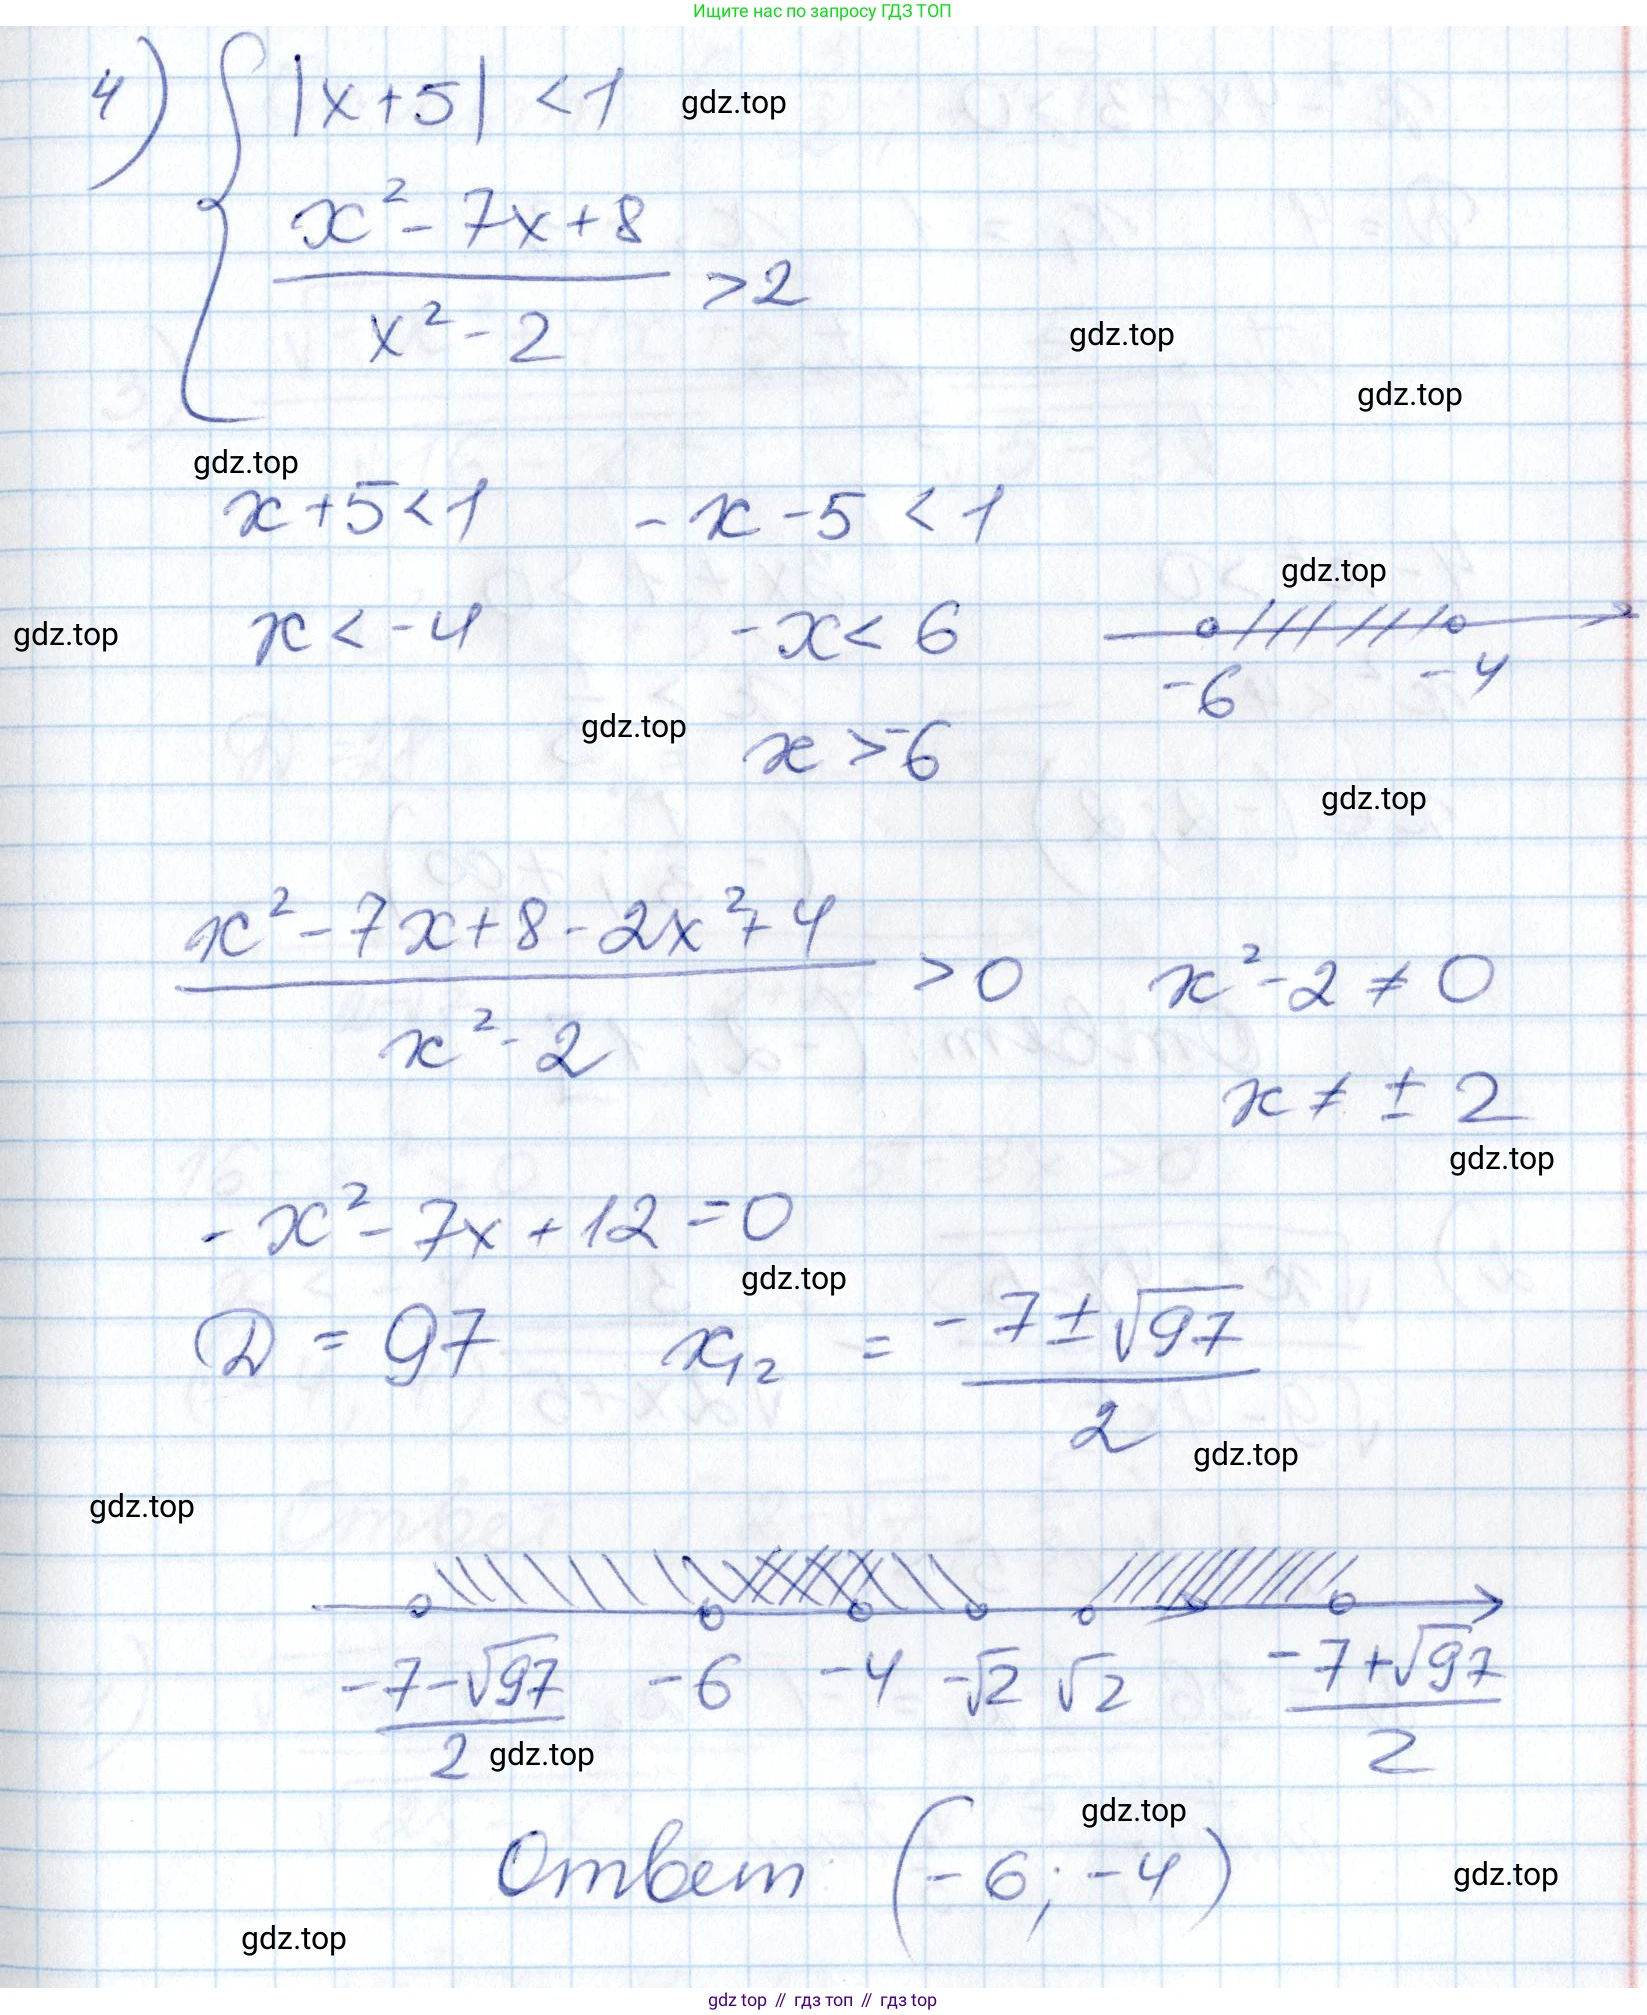 Ищите нас по запросу ГДЗ ТОП
4) { |x+5| < 1 gdz.top
x² - 7x + 8
> 2
x² - 2
gdz.top
gdz.top
gdz.top
x + 5 < 1 - x - 5 < 1
gdz.top
gdz.top x < -4 -x < 6
-6 -4
gdz.top x > -6
gdz.top
x² - 7x + 8 - 2x² + 4
> 0 x² - 2 ≠ 0
x² - 2
x ≠ ± 2
gdz.top
- x² - 7x + 12 = 0
gdz.top
D = 97 x₁₂ = -7 ± √97
2
gdz.top
gdz.top
-7-√97 -6 -4 -√2 √2 -7+√97
2 2
gdz.top
gdz.top
Ответ: (-6; -4) gdz.top
gdz.top
gdz top // гдз топ // гдз top